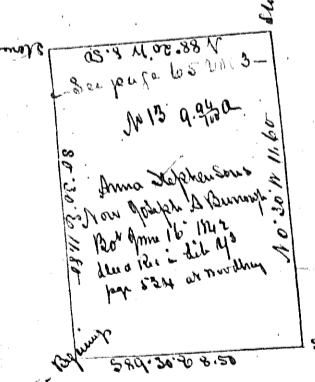 Stone
N 88.20 W 8.50
See page 65
3
No 13 9.94/100 a
Anna Stephensons
Now Joseph A
Bot June 16th 1842
deed Rec in Lib
page 524 at Woodbury
S 0.30 E 11.80
N 0.30 W 11.60
Begining
S 89.30 E 8.50